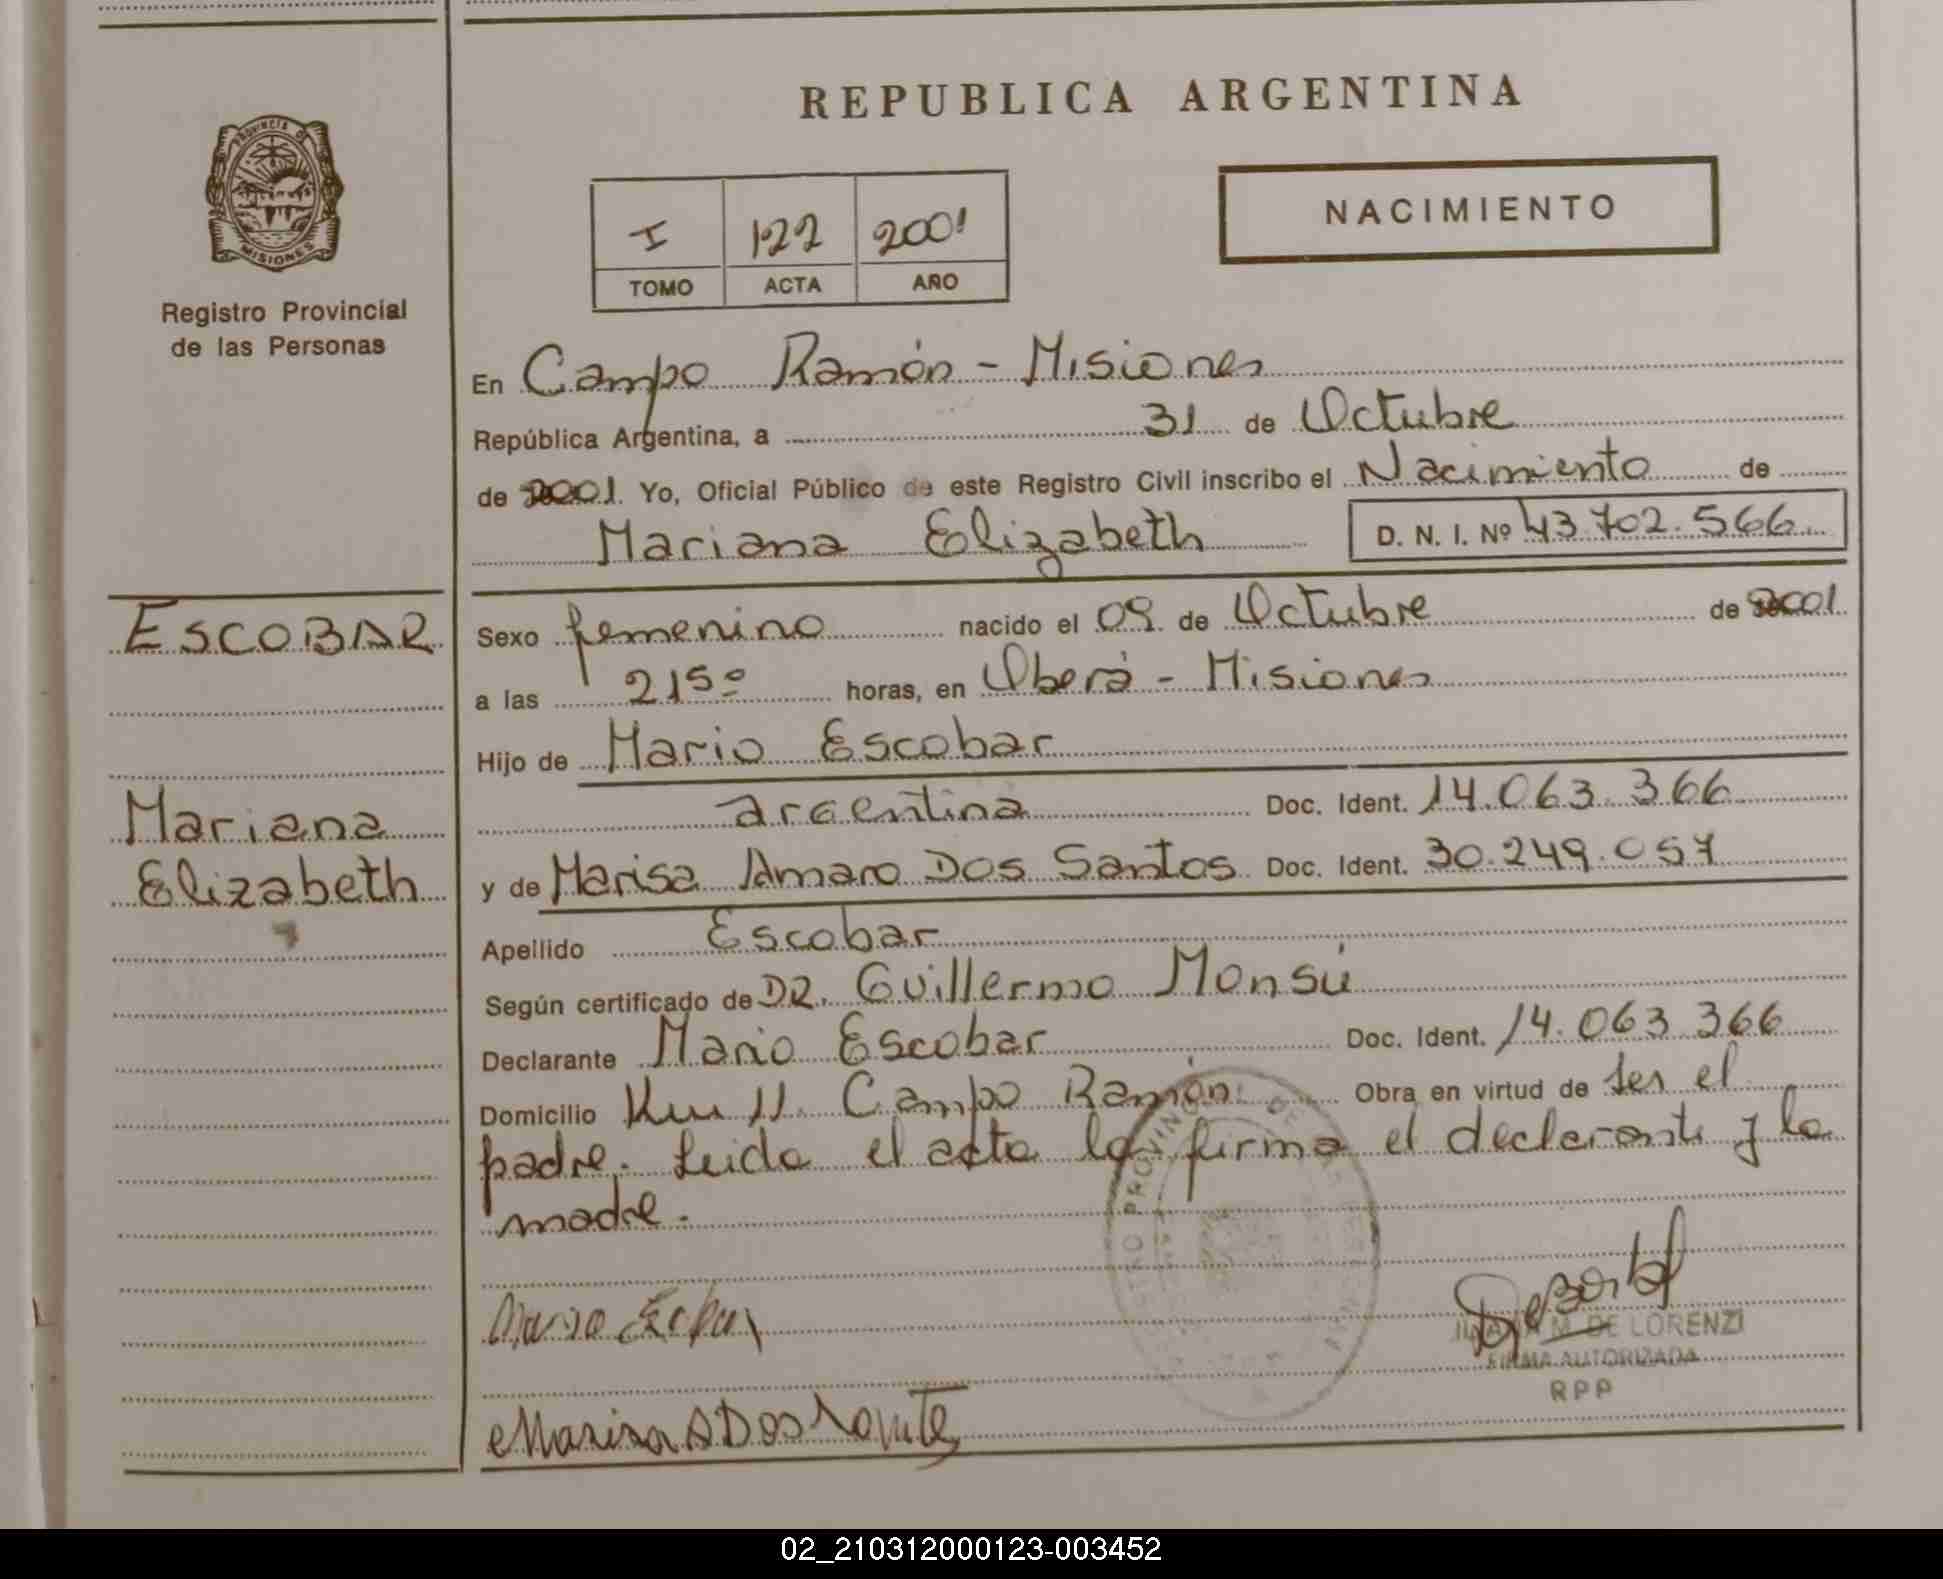 REPUBLICA ARGENTINA
PROVINCIA DE
MISIONES
Registro Provincial
de las Personas
I 122 2001
TOMO ACTA AÑO
NACIMIENTO
En Campo Ramón - Misiones
República Argentina, a 31 de Octubre
de 2001. Yo, Oficial Público de este Registro Civil inscribo el Nacimiento de
Mariana Elizabeth D. N. I. Nº 43.702.566
ESCOBAR
Sexo femenino nacido el 09 de Octubre de 2001
a las 21⁵⁰ horas, en Oberá - Misiones
Hijo de Mario Escobar
argentina Doc. Ident. 14.063.366
Mariana
Elizabeth
y de Marisa Amaro Dos Santos Doc. Ident. 30.249.057
Apellido Escobar
Según certificado de DR. Guillermo Monsú
Declarante Mario Escobar Doc. Ident. 14.063.366
Domicilio Km 11. Campo Ramón Obra en virtud de ser el
padre. Leida el acta la firma el declarante y la
madre.
Mario Escobar
M. DE LORENZI
FIRMA AUTORIZADA
RPP
Marisa A Dos Santos
02_210312000123-003452